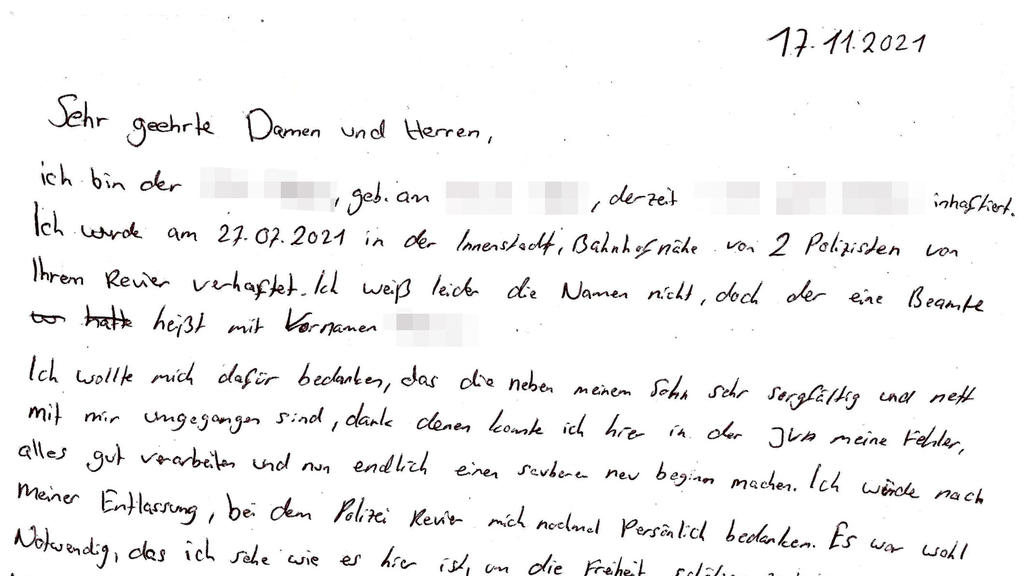 17.11.2021
Sehr geehrte Damen und Herren,
ich bin der , geb. am , derzeit inhaftiert.
Ich wurde am 27.07.2021 in der Innenstadt, Bahnhofsnähe von 2 Polizisten von
Ihrem Revier verhaftet. Ich weiß leider die Namen nicht, doch der eine Beamte
hatte heißt mit Vornamen
Ich wollte mich dafür bedanken, das die neben meinem Sohn sehr sorgfältig und nett
mit mir umgegangen sind, dank denen konnte ich hier in der JVA meine Fehler,
alles gut verarbeiten und nun endlich einen sauberen neu beginn machen. Ich würde nach
meiner Entlassung, bei dem Polizei Revier mich nochmal Persönlich bedanken. Es war wohl
Notwendig, das ich sehe wie es hier ist, um die Freiheit